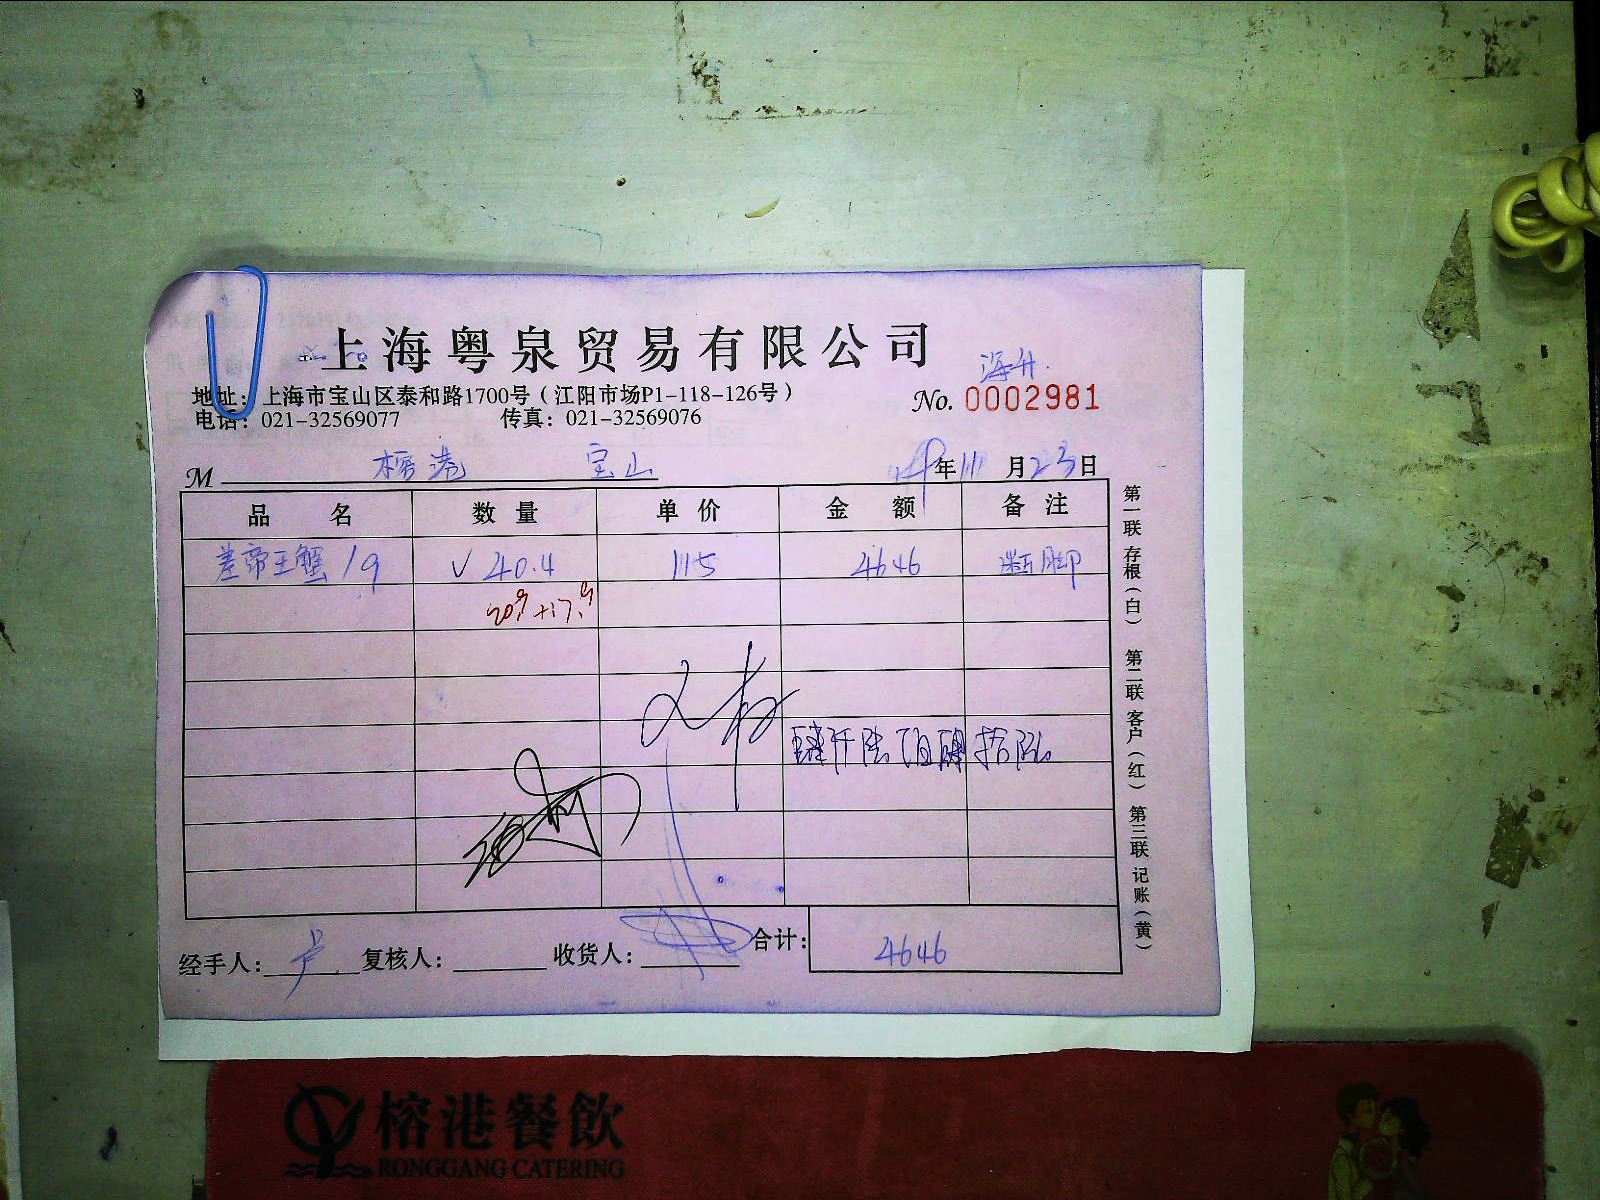 上海粤泉贸易有限公司
海升.
地址：上海市宝山区泰和路1700号（江阳市场P1-118-126号）
No. 0002981
电话：021-32569077 传真：021-32569076
M 榕港 宝山 年 11 月 23 日
品名 数量 单价 金额 备注
差帝王蟹 19 √ 40.4 115 4646 断脚
肆仟陆佰肆拾陆
经手人： 卢 复核人： 收货人： 合计： 4646
第一联 存根（白） 第二联 客户（红） 第三联 记账（黄）
榕港餐飲
RONGGANG CATERING